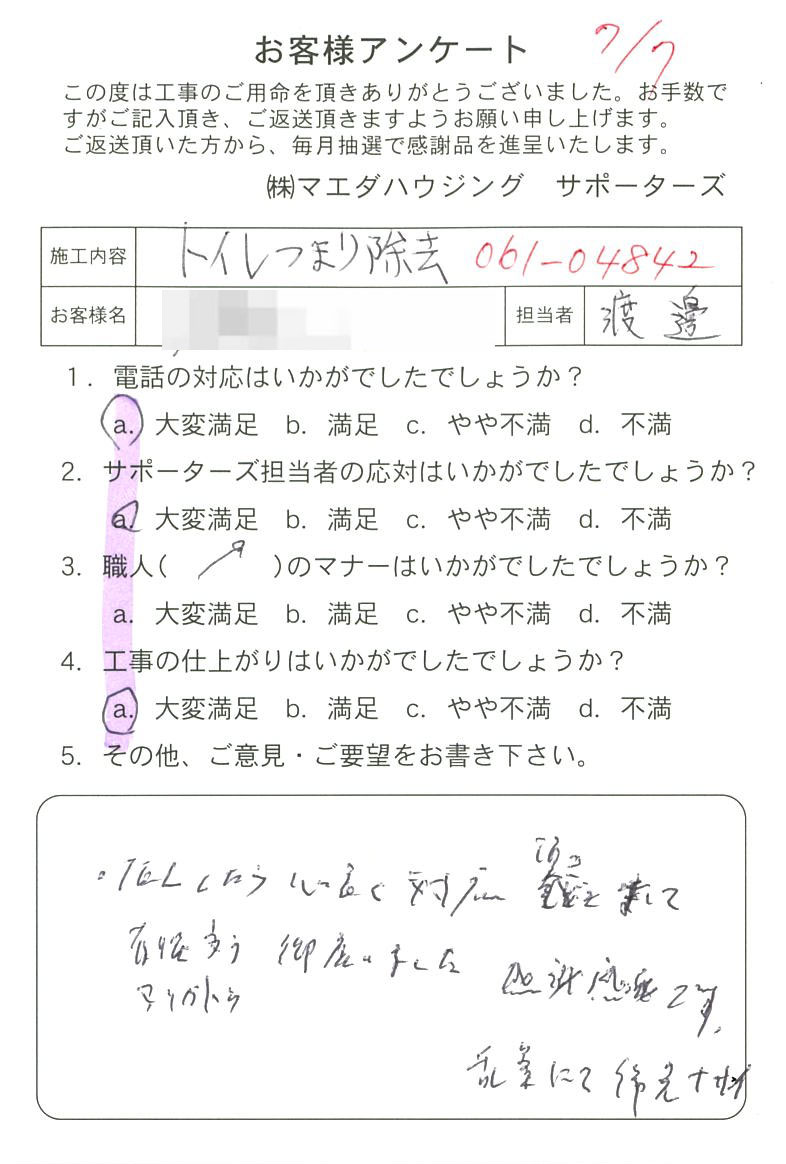 お客様アンケート 7/7
この度は工事のご用命を頂きありがとうございました。お手数で
すがご記入頂き、ご返送頂きますようお願い申し上げます。
ご返送頂いた方から、毎月抽選で感謝品を進呈いたします。
㈱マエダハウジング サポーターズ
施工内容 トイレつまり除去 061-04842
お客様名 担当者 渡邊
1. 電話の対応はいかがでしたでしょうか?
a. 大変満足 b. 満足 c. やや不満 d. 不満
2. サポーターズ担当者の応対はいかがでしたでしょうか?
a. 大変満足 b. 満足 c. やや不満 d. 不満
3. 職人( )のマナーはいかがでしたでしょうか?
a. 大変満足 b. 満足 c. やや不満 d. 不満
4. 工事の仕上がりはいかがでしたでしょうか?
a. 大変満足 b. 満足 c. やや不満 d. 不満
5. その他、ご意見・ご要望をお書き下さい。
・TELしたら 心良く 対応 して
有難う 御座いました
ありがとう 感謝感激です。
乱筆にて